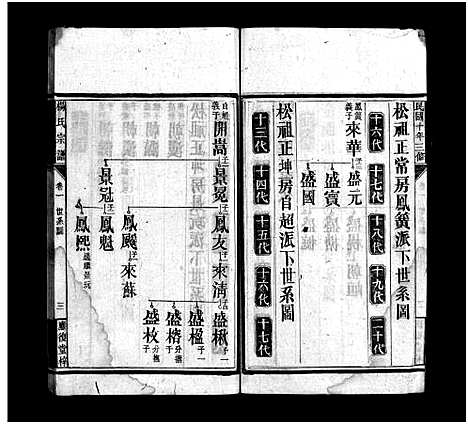 民國十年三修
松祖正常房鳳簧派下世系圖
十六代 十七代 十八代 十九代 二十代
鳳簧義子 來華
盛元
盛賓
盛國
松祖正坤房自超派下世系圖
十三代 十四代 十五代 十六代 十七代
自超義子 開嵩
景冕 鳳友 來清 盛楸 子一
盛楹 子一
盛榕
盛枚
鳳颺 來蘇
景冠 鳳魁
鳳熙
楊氏宗譜
卷一 世系圖
三